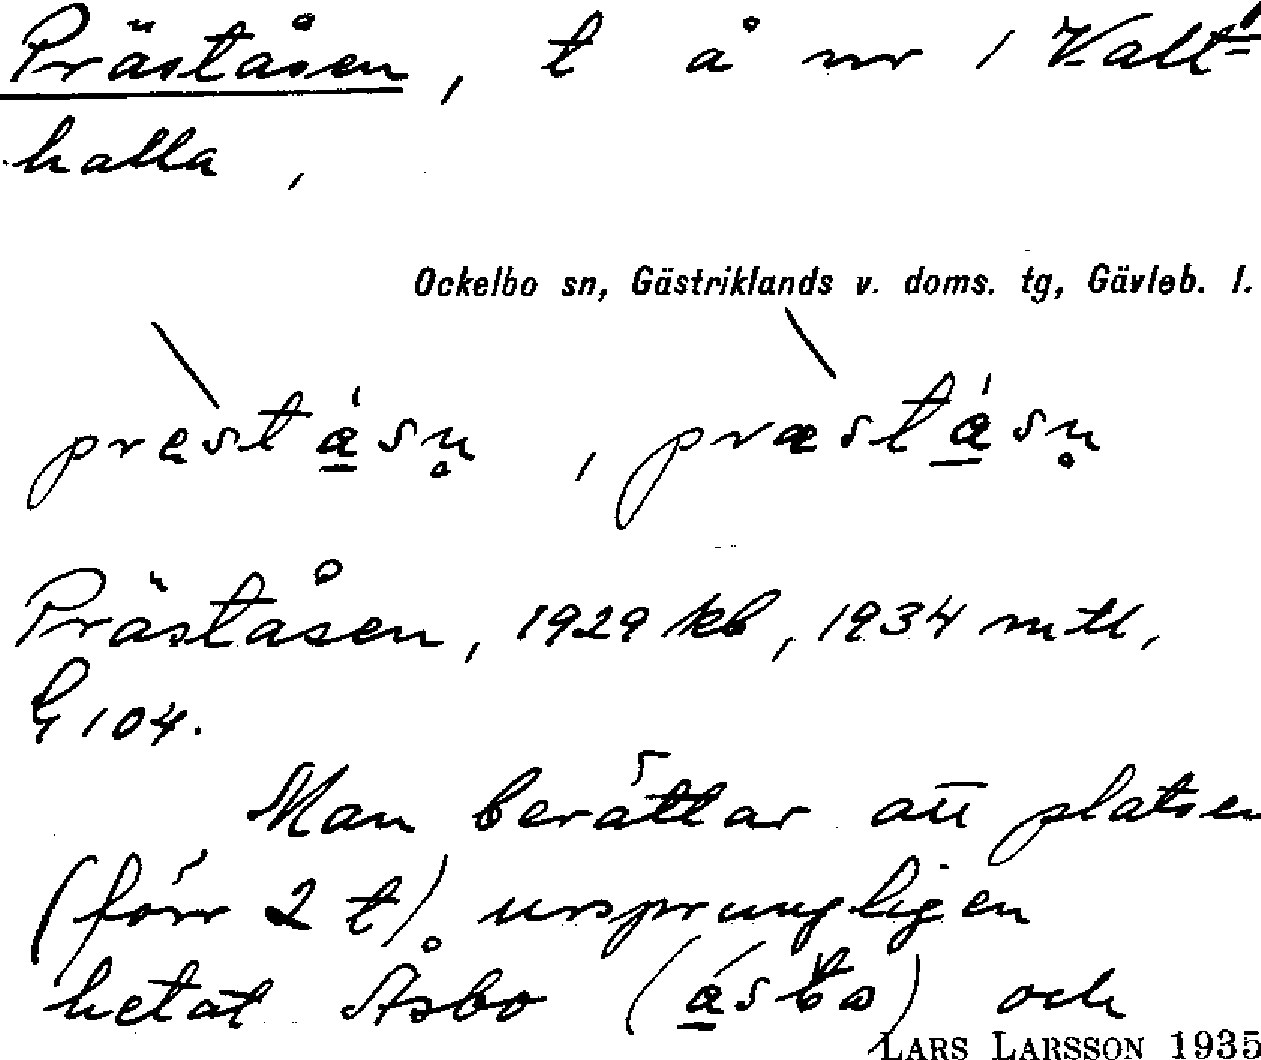 Präståsen, t å nr 1 Valt-
halla,
Ockelbo sn, Gästriklands v. doms. tg, Gävleb. l.
Präståsen, 1929 kb, 1934 mtl,
G 104.
Man berättar att platsen
(förr 2 t) ursprungligen
hetat Åsbo (åsbo) och
LARS LARSSON 1935